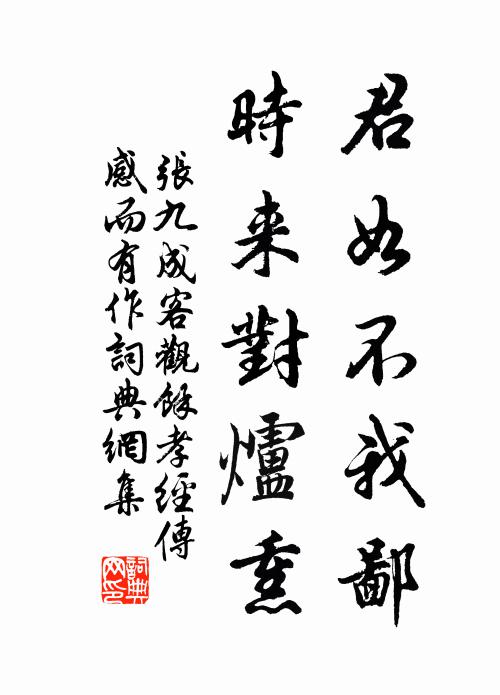 君如不我鄙
時来對爐熏
張九成客觀餘孝經傳
感而有作詞典網集
詞典网印